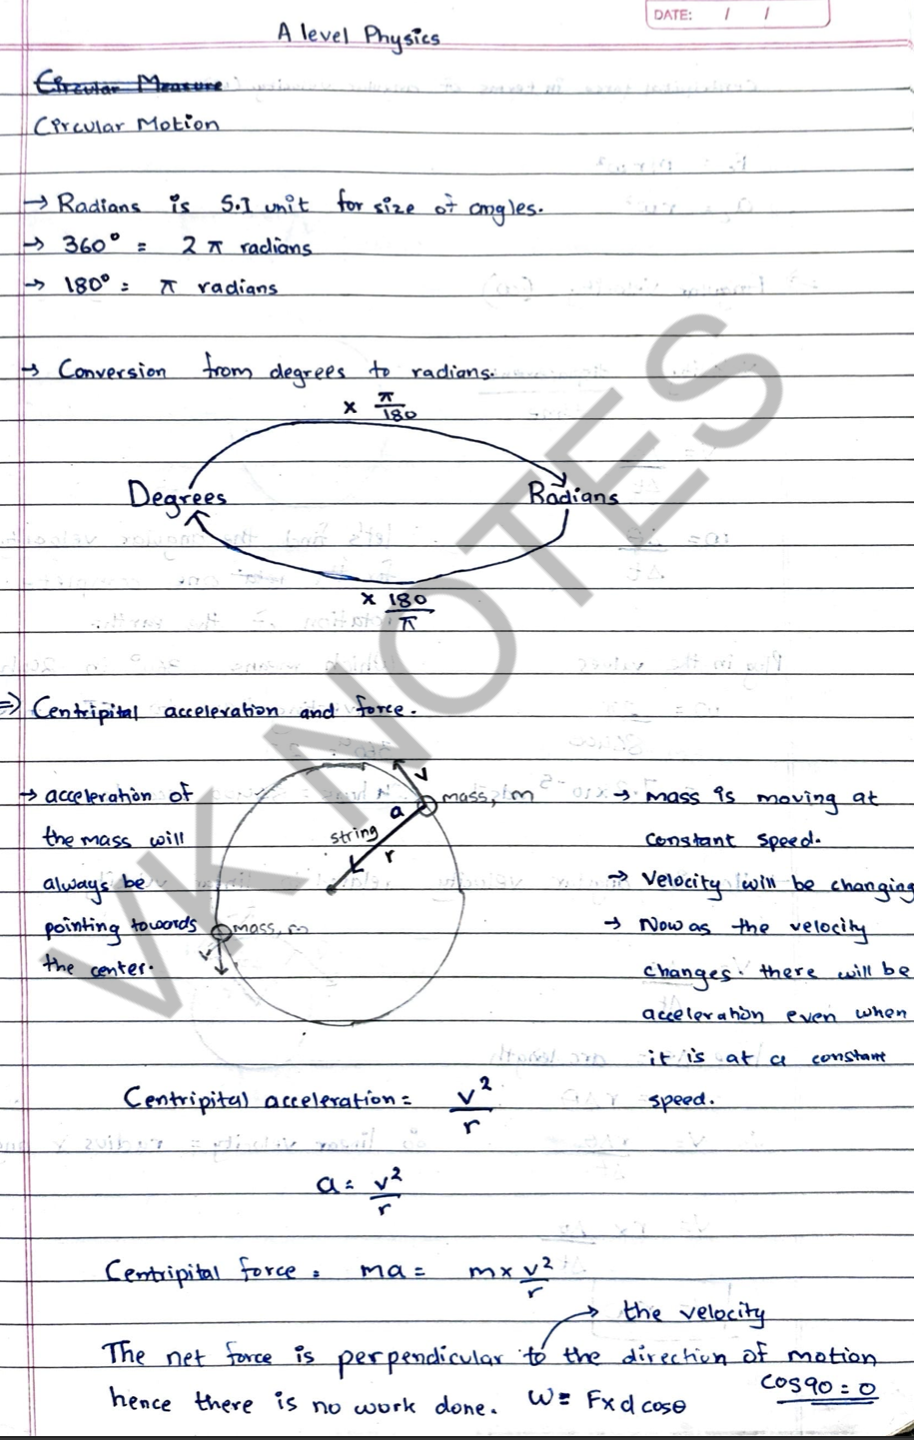 DATE: / /
A level Physics
Circular Measure
Circular Motion
→ Radians is S.I unit for size of angles.
→ 360° = 2 π radians
→ 180° = π radians
→ Conversion from degrees to radians.
× π/180
Degrees Radians
× 180/π
⇒ Centripital acceleration and force.
→ acceleration of
the mass will
always be
pointing towards
the center.
v
a mass, m
string
r
mass, m
v
→ mass is moving at
constant speed.
→ Velocity will be changing
→ Now as the velocity
changes. there will be
acceleration even when
it is at a constant
speed.
Centripital acceleration = v²/r
a = v²/r
Centripital force = ma = m × v²/r
→ the velocity
The net force is perpendicular to the direction of motion
hence there is no work done. W = F × d cosθ cos90 = 0
VK NOTES